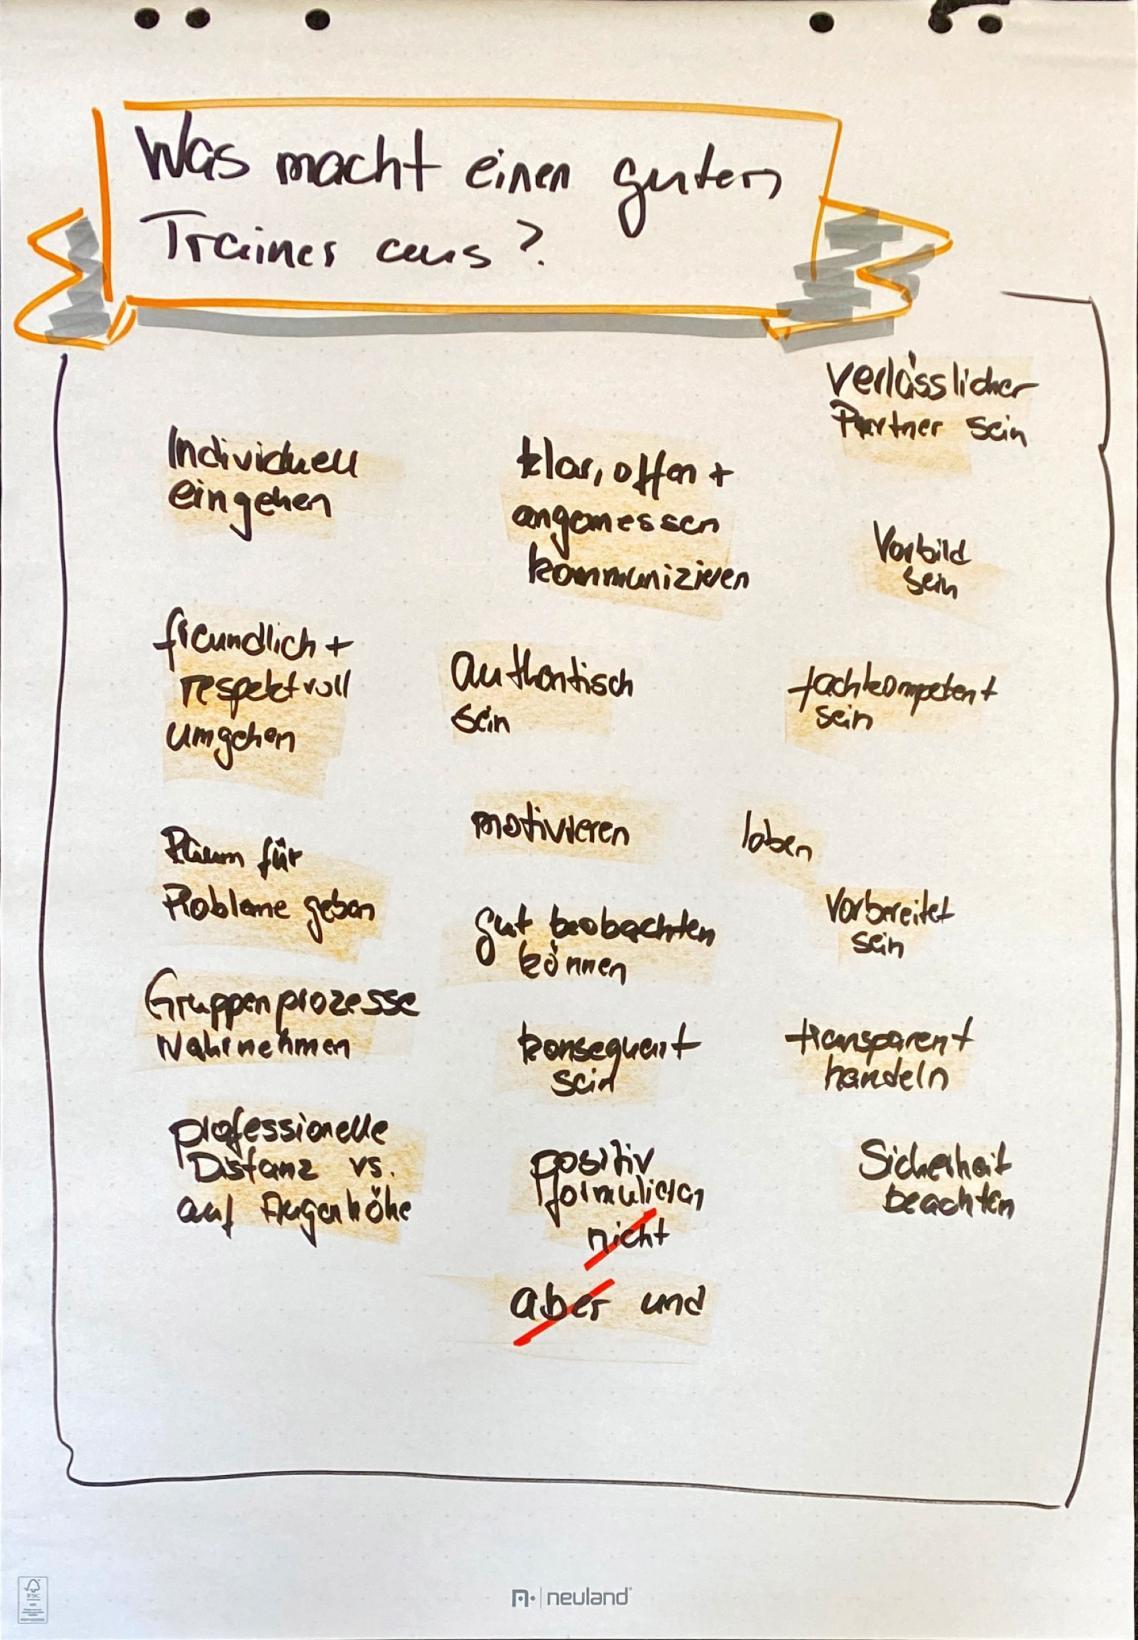 Was macht einen guten
Trainer aus?
Individuell
eingehen
freundlich +
respektvoll
umgehen
Raum für
Probleme geben
Gruppenprozesse
Wahrnehmen
professionelle
Distanz vs.
auf Augenhöhe
klar, offen +
angemessen
kommunizieren
authentisch
sein
motivieren
gut beobachten
können
konsequent
sein
positiv
formulieren
nicht
aber und
verlässlicher
Partner sein
Vorbild
sein
fachkompetent
sein
loben
Vorbereitet
sein
transparent
handeln
Sicherheit
beachten
neuland